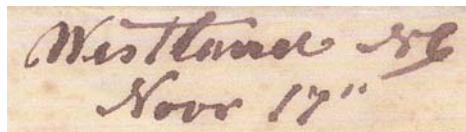 Westland NC
Novr 17"